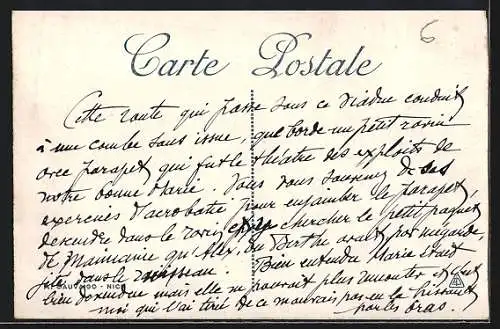 6
Carte Postale
Cette route qui passe sous ce viaduc conduit
à une combe sans issue, que borde un petit ravin
avec parapet qui fut le théâtre des exploits de
notre bonne Marie. Vous vous souvenez de ses
exercices d'acrobatie pour enjamber le parapet,
descendre dans le ravin et y chercher le petit paquet
de Mannanie qu'Alex, ou Berthe avait par mégarde,
jeté dans le ruisseau. Bien entendu Marie était
bien descendue mais elle ne pouvait plus remonter et c'est
moi qui l'ai tiré de ce mauvais pas en la hissant
par les bras.
GAUVADO - NICE